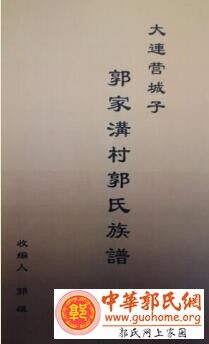 大連营城子
郭家溝村郭氏族譜
收编人 郭
中華郭氏網
www.guohome.org
郭氏网上家園